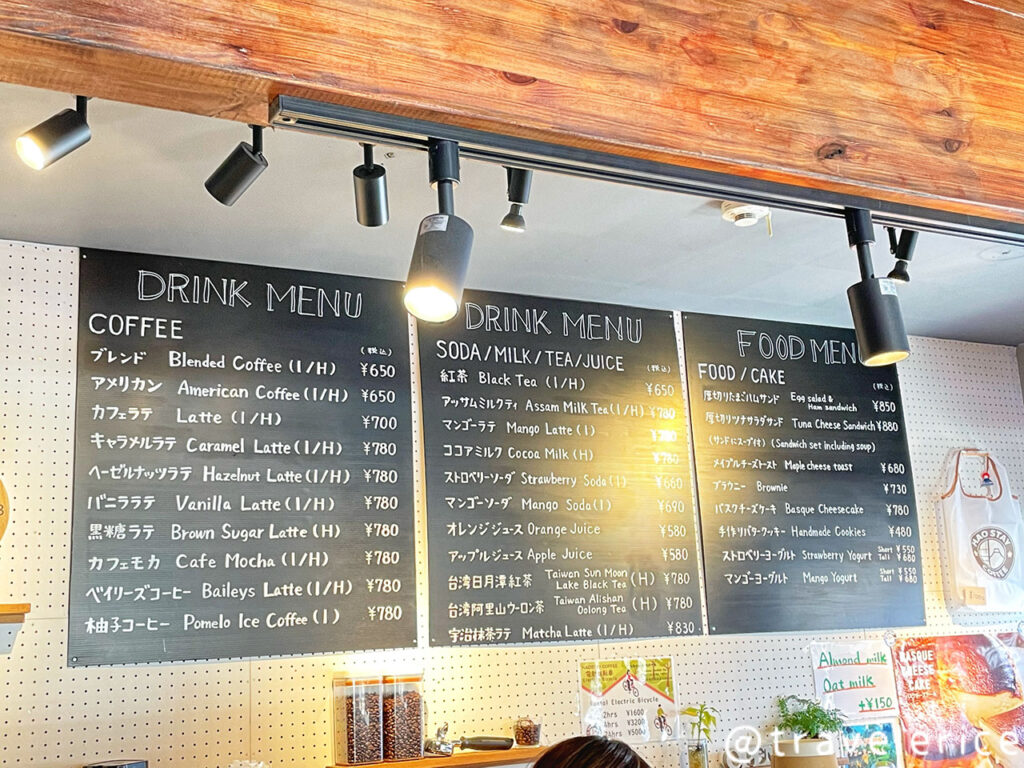 DRINK MENU
COFFEE
(税込)
ブレンド Blended Coffee (I/H) ¥650
アメリカン American Coffee (I/H) ¥650
カフェラテ Latte (I/H) ¥700
キャラメルラテ Caramel Latte (I/H) ¥780
ヘーゼルナッツラテ Hazelnut Latte (I/H) ¥780
バニララテ Vanilla Latte (I/H) ¥780
黒糖ラテ Brown Sugar Latte (H) ¥780
カフェモカ Cafe Mocha (I/H) ¥780
ベイリーズコーヒー Baileys Latte (I/H) ¥780
柚子コーヒー Pomelo Ice Coffee (I) ¥780
DRINK MENU
SODA/MILK/TEA/JUICE
(税込)
紅茶 Black Tea (I/H) ¥650
アッサムミルクティ Assam Milk Tea (I/H) ¥780
マンゴーラテ Mango Latte (I) ¥780
ココアミルク Cocoa Milk (H) ¥780
ストロベリーソーダ Strawberry Soda (I) ¥660
マンゴーソーダ Mango Soda (I) ¥690
オレンジジュース Orange Juice ¥580
アップルジュース Apple Juice ¥580
台湾日月潭紅茶 Taiwan Sun Moon Lake Black Tea (H) ¥780
台湾阿里山ウーロン茶 Taiwan Alishan Oolong Tea (H) ¥780
宇治抹茶ラテ Matcha Latte (I/H) ¥830
FOOD MENU
FOOD/CAKE
(税込)
厚切りたまごハムサンド Egg salad & Ham sandwich ¥850
厚切りツナサラダサンド Tuna Cheese Sandwich ¥880
(サンドにスープ付) (Sandwich set including soup)
メイプルチーズトースト Maple cheese toast ¥680
ブラウニー Brownie ¥730
バスクチーズケーキ Basque Cheesecake ¥780
手作りバタークッキー Handmade Cookies ¥480
ストロベリーヨーグルト Strawberry Yogurt Short ¥550 Tall ¥680
マンゴーヨーグルト Mango Yogurt Short ¥550 Tall ¥680
MAO STAY
COFFEE
Rental Electric Bicycle
2hrs ¥1600
4hrs ¥3200
Almond milk
Oat milk
+¥150
BASQUE
CHEESE
CAKE
@travelerice